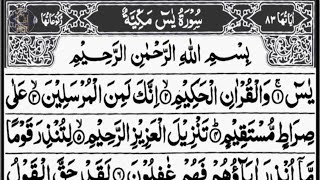 اٰيَاتُهَا ٨٣ سُوْرَةُ يٰسٓ مَكِّيَّةٌ رُكُوْعَاتُهَا ٥
بِسْمِ اللّٰهِ الرَّحْمٰنِ الرَّحِيْمِ
يٰسٓ ۝١ وَالْقُرْاٰنِ الْحَكِيْمِ ۝٢ اِنَّكَ لَمِنَ الْمُرْسَلِيْنَ ۝٣ عَلٰى
صِرَاطٍ مُّسْتَقِيْمٍ ۝٤ تَنْزِيْلَ الْعَزِيْزِ الرَّحِيْمِ ۝٥ لِتُنْذِرَ قَوْمًا
مَّآ اُنْذِرَ اٰبَآؤُهُمْ فَهُمْ غٰفِلُوْنَ ۝٦ لَقَدْ حَقَّ الْقَوْلُ